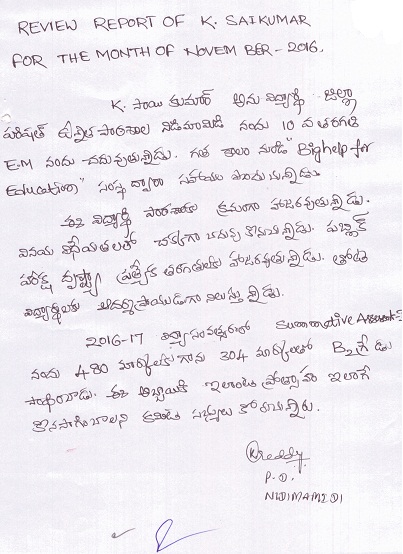 REVIEW REPORT OF K. SAIKUMAR
FOR THE MONTH OF NOVEMBER-2016.
K. సాయి కుమార్ అను విద్యార్థి జిల్లా
పరిషత్ ఉన్నత పాఠశాల నిడిమామిడి నందు 10 వ తరగతి
E.M నందు చదువుతున్నాడు. గత కాలం నుండి "Bighelp for
Education" సంస్థ ద్వారా సహాయం పొందుచున్నాడు
ఈ విద్యార్థి పాఠశాలకు క్రమంగా హాజరవుతున్నాడు.
వినయ విధేయతలతో చక్కగా చదువు కొనుచున్నాడు. పబ్లిక్
పరీక్ష దృష్ట్యా ప్రత్యేక తరగతులకు హాజరవుతున్నాడు. తోటి
విద్యార్థులకు ఆదర్శప్రాయుడుగా నిలుస్తున్నాడు.
2016-17 విద్యాసంవత్సరంలో Summative
నందు 480 మార్కులకు గాను 304 మార్కులతో B2 గ్రేడు
సాధించాడు. ఈ అబ్బాయికి ఇలాంటి ప్రోత్సాహం ఇలాగే
కొనసాగించాలని కమిటి సభ్యులు కోరుచున్నారు.
Kreddy
P.O.
NIDIMAMIDI